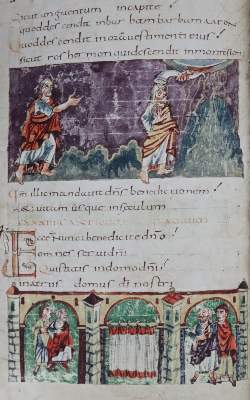 Sicut unguentum incapite!
quoddescendit inbarbam barbam aaron
Quoddescendit inora uestimenti eius!
sicut ros hermon quidescendit inmontesion
illic mandauit dns benedictionem!
& uitam usque insaeculum
Ecce Nunc benedicite dno!
omnes serui dni
Qui statis indomo dni!
inatriis domus di nostri